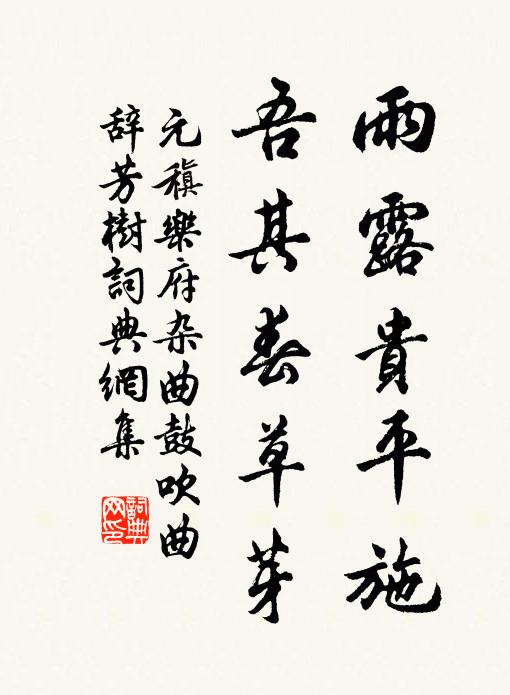 雨露貴平施
吾其春草芽
元稹樂府杂曲鼓吹曲
辞芳樹詞典網集
詞典
网印